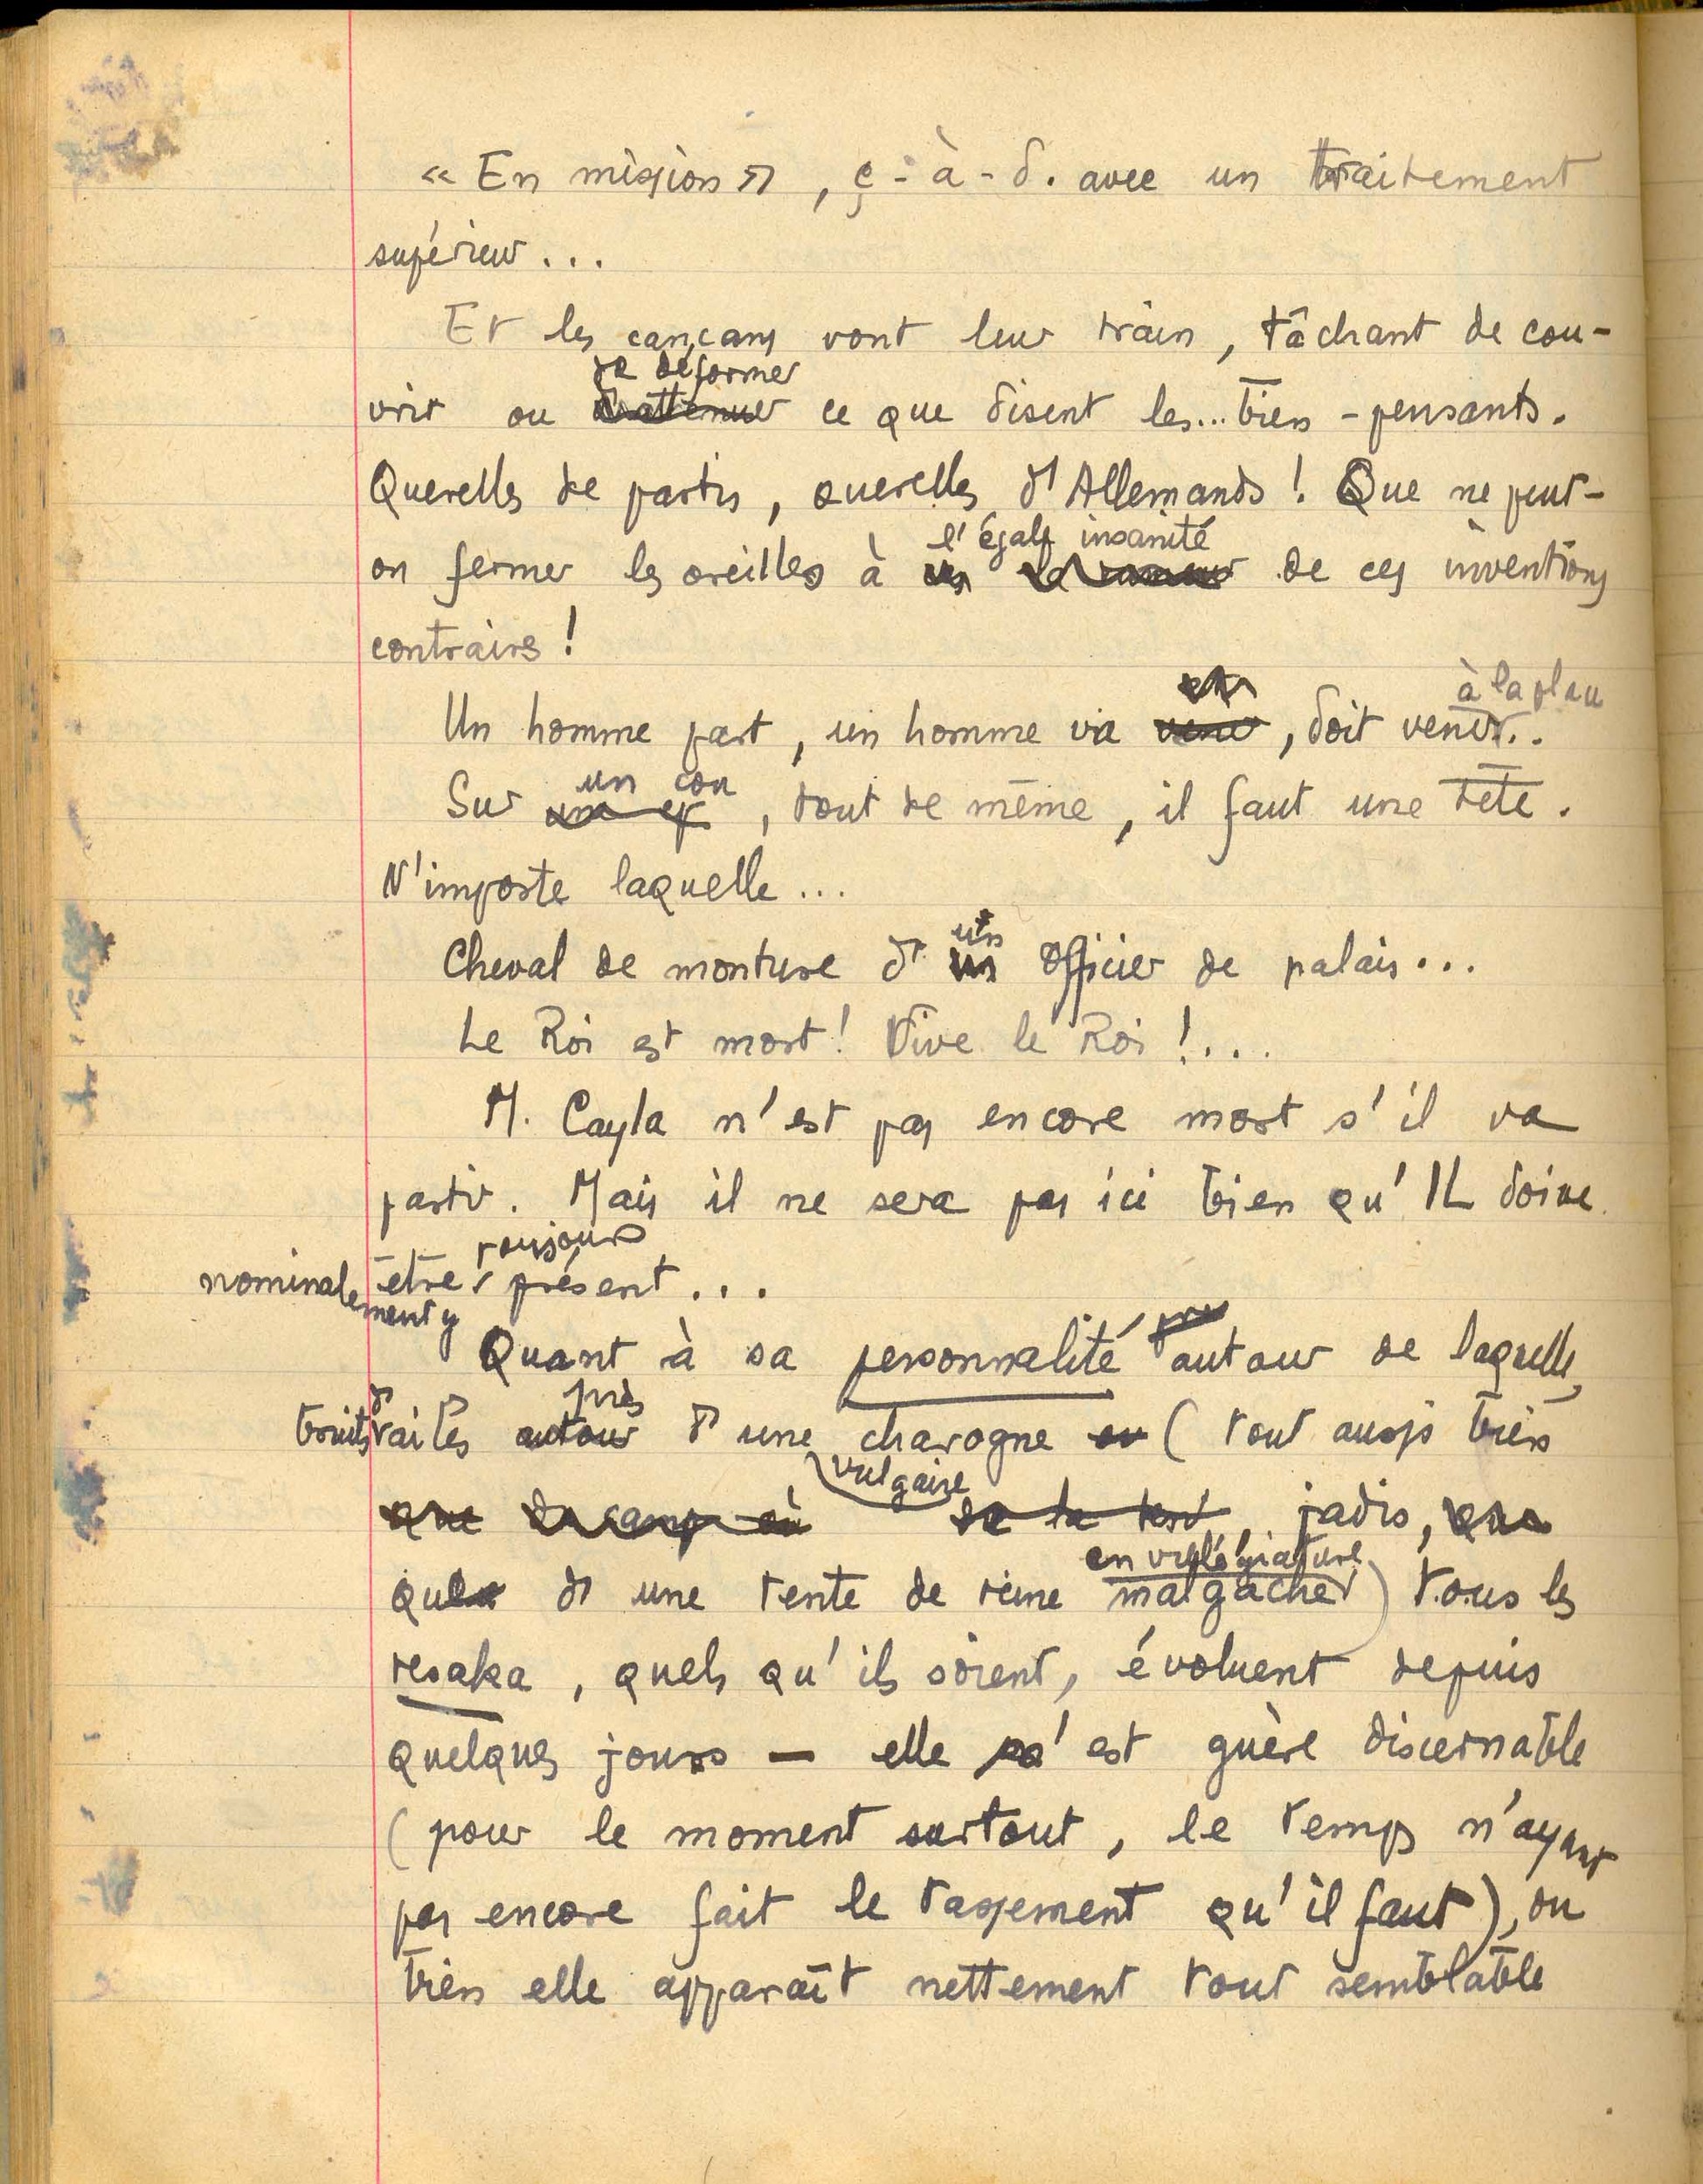 « En mission », c-à-d. avec un traitement
supérieur...
Et les cancans vont leur train, tâchant de cou-
de déformer
vrir ou d'atténuer ce que disent les... bien-pensants.
Querelles de partis, querelles d'Allemands ! Que ne peut-
l'égale insanité
on fermer les oreilles à la rumeur de ces inventions
contraires !
à la place
Un homme part, un homme va venir, doit venir...
un cou
Sur une, tout de même, il faut une tête.
N'importe laquelle...
un
Cheval de monture d'un officier de palais...
Le Roi est mort ! Vive le Roi !...
M. Cayla n'est pas encore mort s'il va
partir. Mais il ne sera pas ici bien qu'IL doive
toujours
nominalement y être présent...
Quant à sa personnalité autour de laquelle,
près
bruits autour d'une charogne (tout aussi bien
vulgaire
que du camp où de la jadis, que
en villégiature
que d'une tente de reine malgache) tous les
resaka, quels qu'ils soient, évoluent depuis
quelques jours — elle n'est guère discernable
(pour le moment surtout, le temps n'ayant
pas encore fait le tassement qu'il faut), ou
bien elle apparaît nettement tout semblable